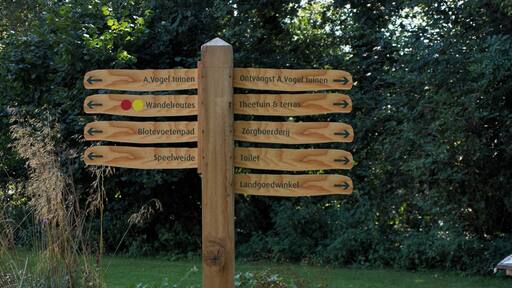 A.Vogel tuinen
Wandelroutes
Blotevoetenpad
Speelweide
Ontvangst A.Vogel tuinen
Theetuin & terras
Zorgboerderij
Toilet
Landgoedwinkel